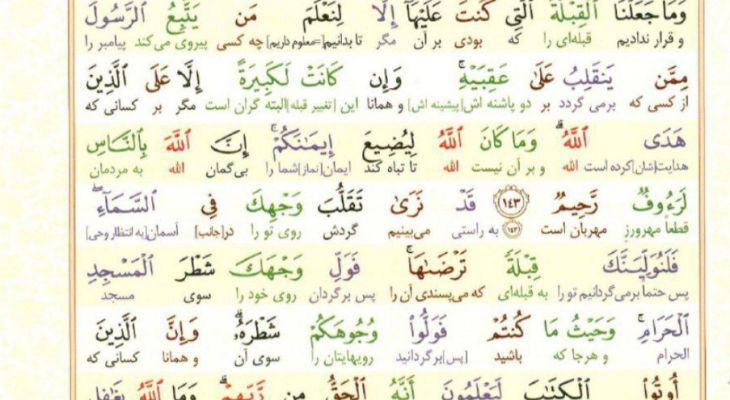 وَمَا جَعَلْنَا الْقِبْلَةَ الَّتِي كُنتَ عَلَيْهَا إِلَّا لِنَعْلَمَ مَن يَتَّبِعُ الرَّسُولَ
و قرار ندادیم قبله‌ای را که بودی بر آن مگر تا بدانیم[=معلوم داریم] چه کسی پیروی می‌کند پیامبر را
مِمَّن يَنقَلِبُ عَلَىٰ عَقِبَيْهِ ۚ وَإِن كَانَتْ لَكَبِيرَةً إِلَّا عَلَى الَّذِينَ
از کسی که برمی گردد بر دو پاشنه اش[پیشینه اش] و همانا این [تغییر قبله]البته گران است مگر بر کسانی که
هَدَى اللَّهُ ۗ وَمَا كَانَ اللَّهُ لِيُضِيعَ إِيمَٰنَكُمْ ۚ إِنَّ اللَّهَ بِالنَّاسِ
هدایت[شان]کرده است الله و بر آن نیست الله تا تباه کند ایمان[نماز]شما را بی‌گمان الله به مردمان
لَرَءُوفٌ رَّحِيمٌ ١٤٣ قَدْ نَرَىٰ تَقَلُّبَ وَجْهِكَ فِي السَّمَاءِ ۖ
قطعاً مهرورز مهربان است ١٤٣ به راستی می‌بینیم گردش روی تو را در[جانب] آسمان[به انتظار وحی]
فَلَنُوَلِّيَنَّكَ قِبْلَةً تَرْضَىٰهَا ۚ فَوَلِّ وَجْهَكَ شَطْرَ الْمَسْجِدِ
پس حتماً برمی‌گردانیم تو را به قبله‌ای که می‌پسندی آن را پس برگردان روی خود را سوی مسجد
الْحَرَامِ ۚ وَحَيْثُ مَا كُنتُمْ فَوَلُّوا وُجُوهَكُمْ شَطْرَهُ ۗ وَإِنَّ الَّذِينَ
الحرام و هرجا که باشید [پس]برگردانید رویهایتان را سوی آن و همانا کسانی که
أُوتُوا الْكِتَٰبَ لَيَعْلَمُونَ أَنَّهُ الْحَقُّ مِن رَّبِّهِمْ ۗ وَمَا اللَّهُ بِغَٰفِلٍ